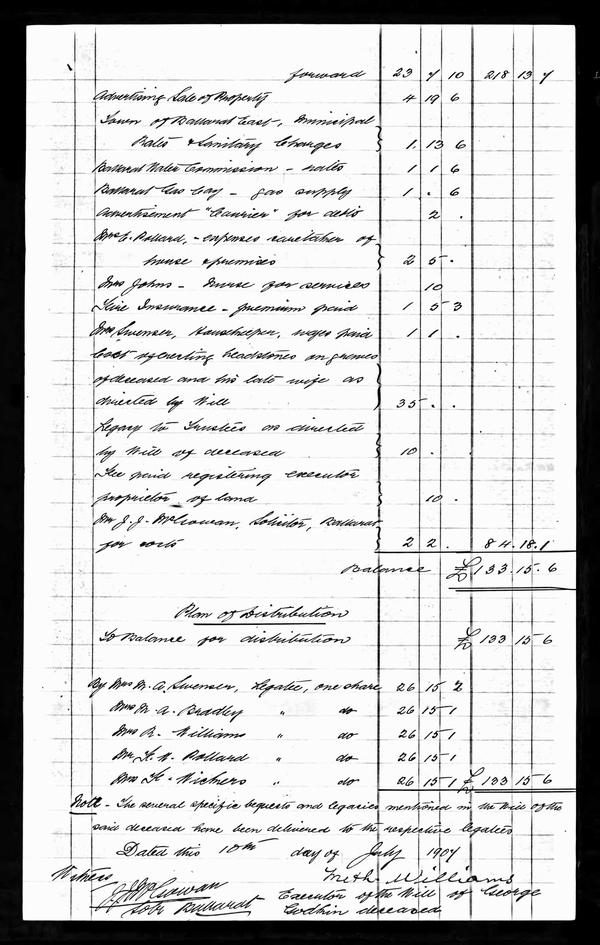 forward 23 7 10 218 13 7
Advertising Sale of Property 4 19 6
Town of Ballarat East, Municipal
Rates & Sanitary Charges 1. 13 6
Ballarat Water Commission - rates 1 1 6
Ballarat Gas Coy - gas supply 1 . 6
Advertisement "Courier" for debts 2 .
Mrs E. Pollard, - expenses caretaker of
house & premises 2 5 .
Mrs Johns - Nurse for services 10
Fire Insurance - premium paid 1 5 3
Mrs Swenser, Housekeeper, wages paid 1 1 .
Cost of erecting headstones on graves
of deceased and his late wife as
directed by Will 35 . .
Legacy to Trustees as directed
by Will of deceased 10 . .
Fee paid registering executor
proprietor of land 10 .
Mr J. J. McGowan, Solicitor, Ballarat
for costs 2 2 . 84. 18. 1
Balance £ 133. 15. 6
Plan of Distribution
To Balance for distribution £ 133 15 6
By Mrs M. A. Swenser, Legatee, one share 26 15 2
Mrs M. A. Bradley " do 26 15 1
Mrs R. Williams " do 26 15 1
Mr F. W. Pollard " do 26 15 1
Mrs K. Vickers " do 26 15 1 £ 133 15 6
Note - The several specific bequests and legacies mentioned in the Will of the
said deceased have been delivered to the respective legatees
Dated this 10th day of July 1907
Witness Williams
J J McGowan Executor of the Will of George
Solr Ballarat deceased